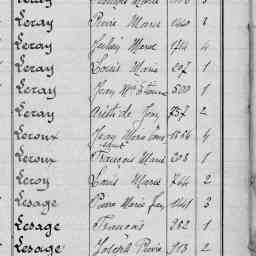 Leray François Marie
Leray Pierre Marie 1440 8
Leray Julien Marie 1714 4
Leray Louis Marie 207 1
Leray Jean Mie Etienne 500 1
Leray Aristide Jony 757 2
Leroux Jean Marie 1886 4
Leroux François Marie 203 1
Leroy Louis Marie 744 2
Lesage Pierre Marie Jean 1441 3
Lesage François 282 1
Lesage Joseph Pierre 913 2